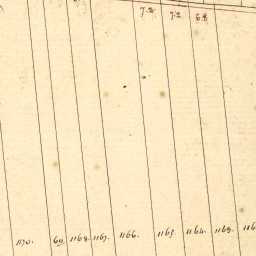 7.2. 7.2. 6.8.
1170. 69. 1168. 1167. 1166. 1165. 1164. 1163. 116